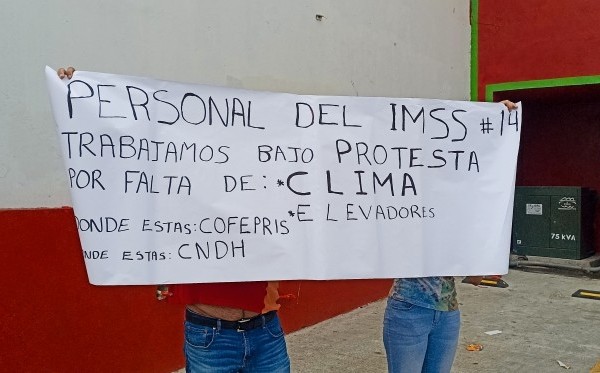 PERSONAL DEL IMSS #14
TRABAJAMOS BAJO PROTESTA
POR FALTA DE: *CLIMA
*ELEVADORES
DONDE ESTAS: COFEPRIS
NDE ESTAS: CNDH
75 kVA